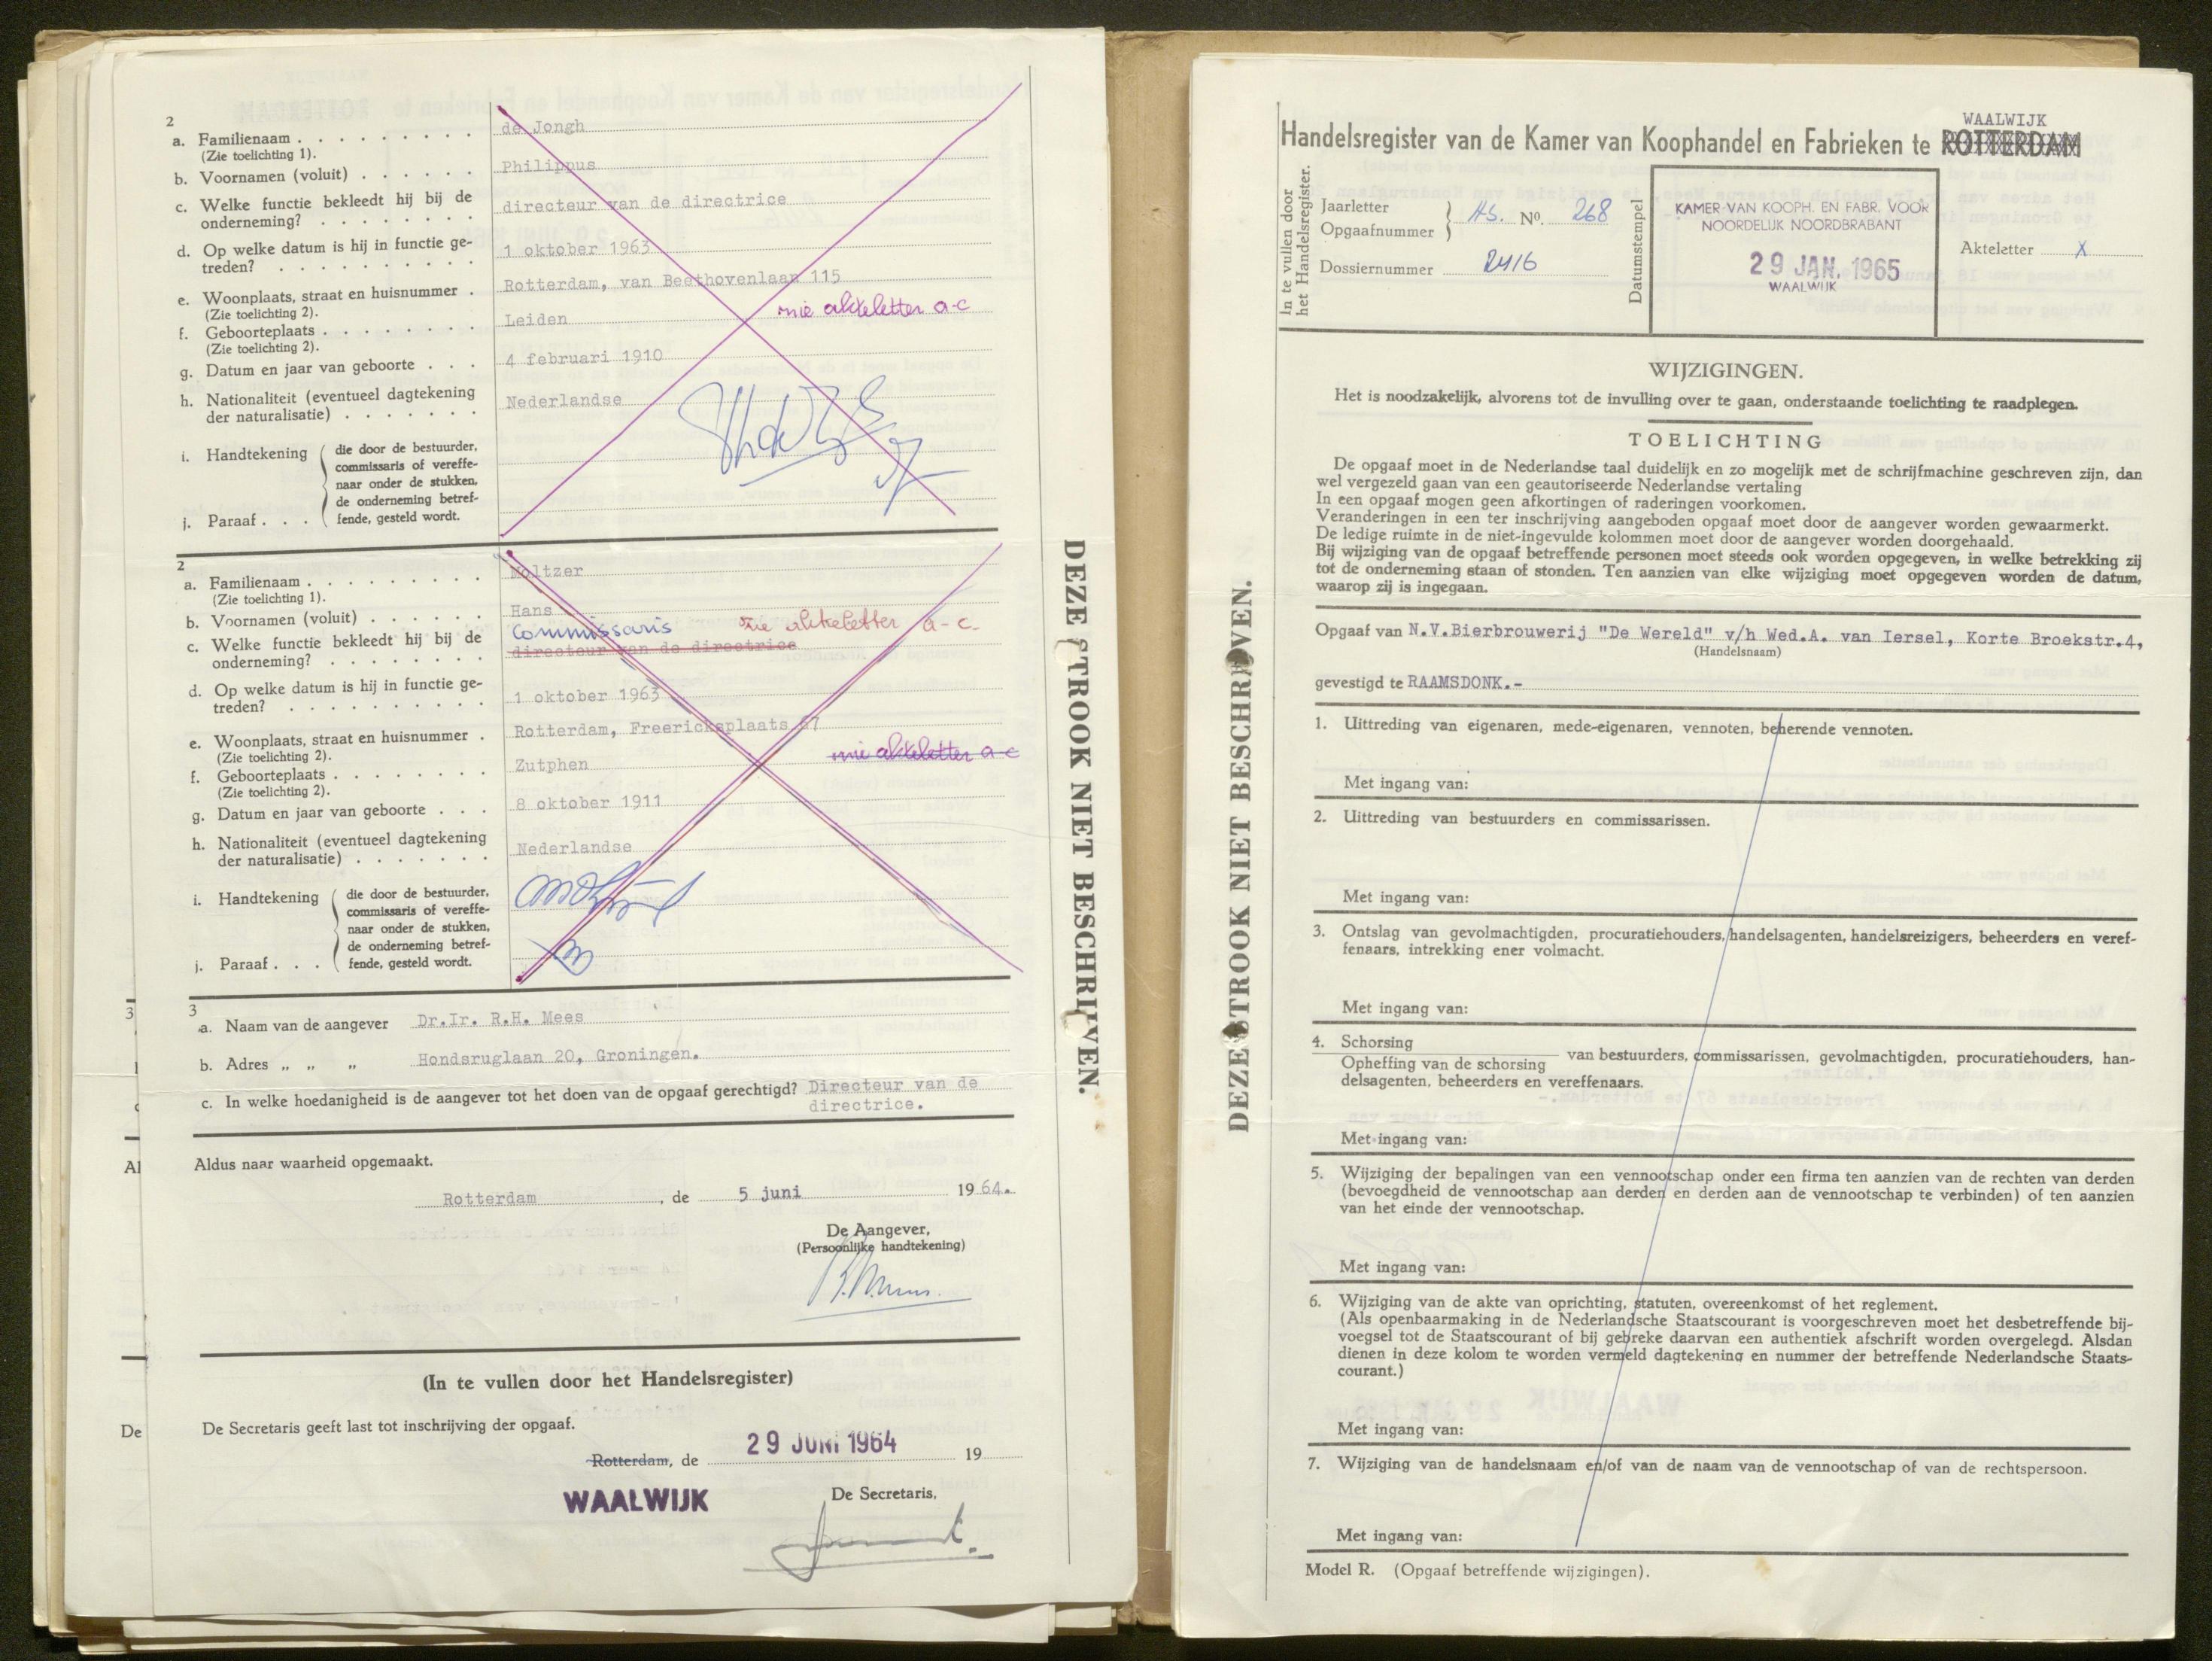 2
a. Familienaam . . . . . . . . . de Jongh
(Zie toelichting 1).
b. Voornamen (voluit) . . . . . . Philippus
c. Welke functie bekleedt hij bij de directeur van de directrice
onderneming? . . . . . . . .
d. Op welke datum is hij in functie ge- 1 oktober 1963
treden? . . . . . . . . . .
e. Woonplaats, straat en huisnummer . Rotterdam, van Beethovenlaan 115
(Zie toelichting 2).
zie akteletter a-c
f. Geboorteplaats . . . . . . . . Leiden
(Zie toelichting 2).
g. Datum en jaar van geboorte . . . 4 februari 1910
h. Nationaliteit (eventueel dagtekening Nederlandse
der naturalisatie) . . . . . . .
i. Handtekening die door de bestuurder,
commissaris of vereffe-
naar onder de stukken,
de onderneming betref-
j. Paraaf . . . fende, gesteld wordt.
2
a. Familienaam . . . . . . . . . Moltzer
(Zie toelichting 1).
b. Voornamen (voluit) . . . . . . Hans
Commissaris zie akteletter a-c.
c. Welke functie bekleedt hij bij de directeur van de directrice
onderneming? . . . . . . . .
d. Op welke datum is hij in functie ge- 1 oktober 1963
treden? . . . . . . . . . .
e. Woonplaats, straat en huisnummer . Rotterdam, Freericksplaats 67
(Zie toelichting 2).
zie akteletter a-c
f. Geboorteplaats . . . . . . . . Zutphen
(Zie toelichting 2).
g. Datum en jaar van geboorte . . . 8 oktober 1911
h. Nationaliteit (eventueel dagtekening Nederlandse
der naturalisatie) . . . . . . .
i. Handtekening die door de bestuurder,
commissaris of vereffe-
naar onder de stukken,
de onderneming betref-
j. Paraaf . . . fende, gesteld wordt.
3
3
a. Naam van de aangever Dr.Ir. R.H. Mees
b. Adres „ „ „ Hondsruglaan 20, Groningen.
c. In welke hoedanigheid is de aangever tot het doen van de opgaaf gerechtigd? Directeur van de
directrice.
Al
Aldus naar waarheid opgemaakt.
Rotterdam, de 5 juni 1964.
De Aangever,
(Persoonlijke handtekening)
(In te vullen door het Handelsregister)
De
De Secretaris geeft last tot inschrijving der opgaaf.
Rotterdam, de 29 JUNI 1964 19
WAALWIJK
De Secretaris,
DEZE STROOK NIET BESCHRIJVEN.
DEZE STROOK NIET BESCHRIJVEN.
WAALWIJK
Handelsregister van de Kamer van Koophandel en Fabrieken te ROTTERDAM
In te vullen door
het Handelsregister.
Jaarletter
Opgaafnummer
HS. No. 268
Dossiernummer 2416
Datumstempel
KAMER VAN KOOPH. EN FABR. VOOR
NOORDELIJK NOORDBRABANT
29 JAN. 1965
WAALWIJK
Akteletter X
WIJZIGINGEN.
Het is noodzakelijk, alvorens tot de invulling over te gaan, onderstaande toelichting te raadplegen.
TOELICHTING
De opgaaf moet in de Nederlandse taal duidelijk en zo mogelijk met de schrijfmachine geschreven zijn, dan
wel vergezeld gaan van een geautoriseerde Nederlandse vertaling
In een opgaaf mogen geen afkortingen of raderingen voorkomen.
Veranderingen in een ter inschrijving aangeboden opgaaf moet door de aangever worden gewaarmerkt.
De ledige ruimte in de niet-ingevulde kolommen moet door de aangever worden doorgehaald.
Bij wijziging van de opgaaf betreffende personen moet steeds ook worden opgegeven, in welke betrekking zij
tot de onderneming staan of stonden. Ten aanzien van elke wijziging moet opgegeven worden de datum,
waarop zij is ingegaan.
Opgaaf van N.V.Bierbrouwerij "De Wereld" v/h Wed.A. van Iersel, Korte Broekstr.4,
(Handelsnaam)
gevestigd te RAAMSDONK.-
1. Uittreding van eigenaren, mede-eigenaren, vennoten, beherende vennoten.
Met ingang van:
2. Uittreding van bestuurders en commissarissen.
Met ingang van:
3. Ontslag van gevolmachtigden, procuratiehouders, handelsagenten, handelsreizigers, beheerders en veref-
fenaars, intrekking ener volmacht.
Met ingang van:
4. Schorsing
Opheffing van de schorsing van bestuurders, commissarissen, gevolmachtigden, procuratiehouders, han-
delsagenten, beheerders en vereffenaars.
Met ingang van:
5. Wijziging der bepalingen van een vennootschap onder een firma ten aanzien van de rechten van derden
(bevoegdheid de vennootschap aan derden en derden aan de vennootschap te verbinden) of ten aanzien
van het einde der vennootschap.
Met ingang van:
6. Wijziging van de akte van oprichting, statuten, overeenkomst of het reglement.
(Als openbaarmaking in de Nederlandsche Staatscourant is voorgeschreven moet het desbetreffende bij-
voegsel tot de Staatscourant of bij gebreke daarvan een authentiek afschrift worden overgelegd. Alsdan
dienen in deze kolom te worden vermeld dagtekening en nummer der betreffende Nederlandsche Staats-
courant.)
Met ingang van:
7. Wijziging van de handelsnaam en/of van de naam van de vennootschap of van de rechtspersoon.
Met ingang van:
Model R. (Opgaaf betreffende wijzigingen).